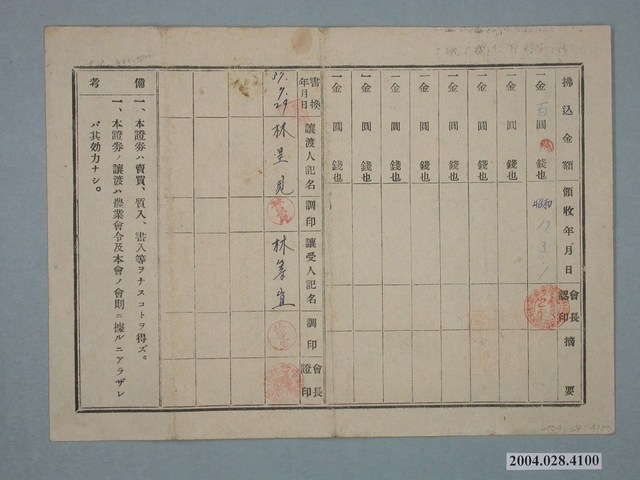 拂込金額領收年月日會長認印摘要
一金百圓錢也昭和17.3.1
一金圓錢也
一金圓錢也
一金圓錢也
一金圓錢也
一金圓錢也
一金圓錢也
一金圓錢也
書換年月日讓渡人記名調印讓受人記名調印會長證印
37.7.29林星見林筆宜
備考
一、本證券ハ賣買、質入、書入等ヲナスコトヲ得ズ。
一、本證券ノ讓渡ハ農業會令及本會ノ會則ニ據ルニアラザレ
バ其効力ナシ。
2004.028.4100